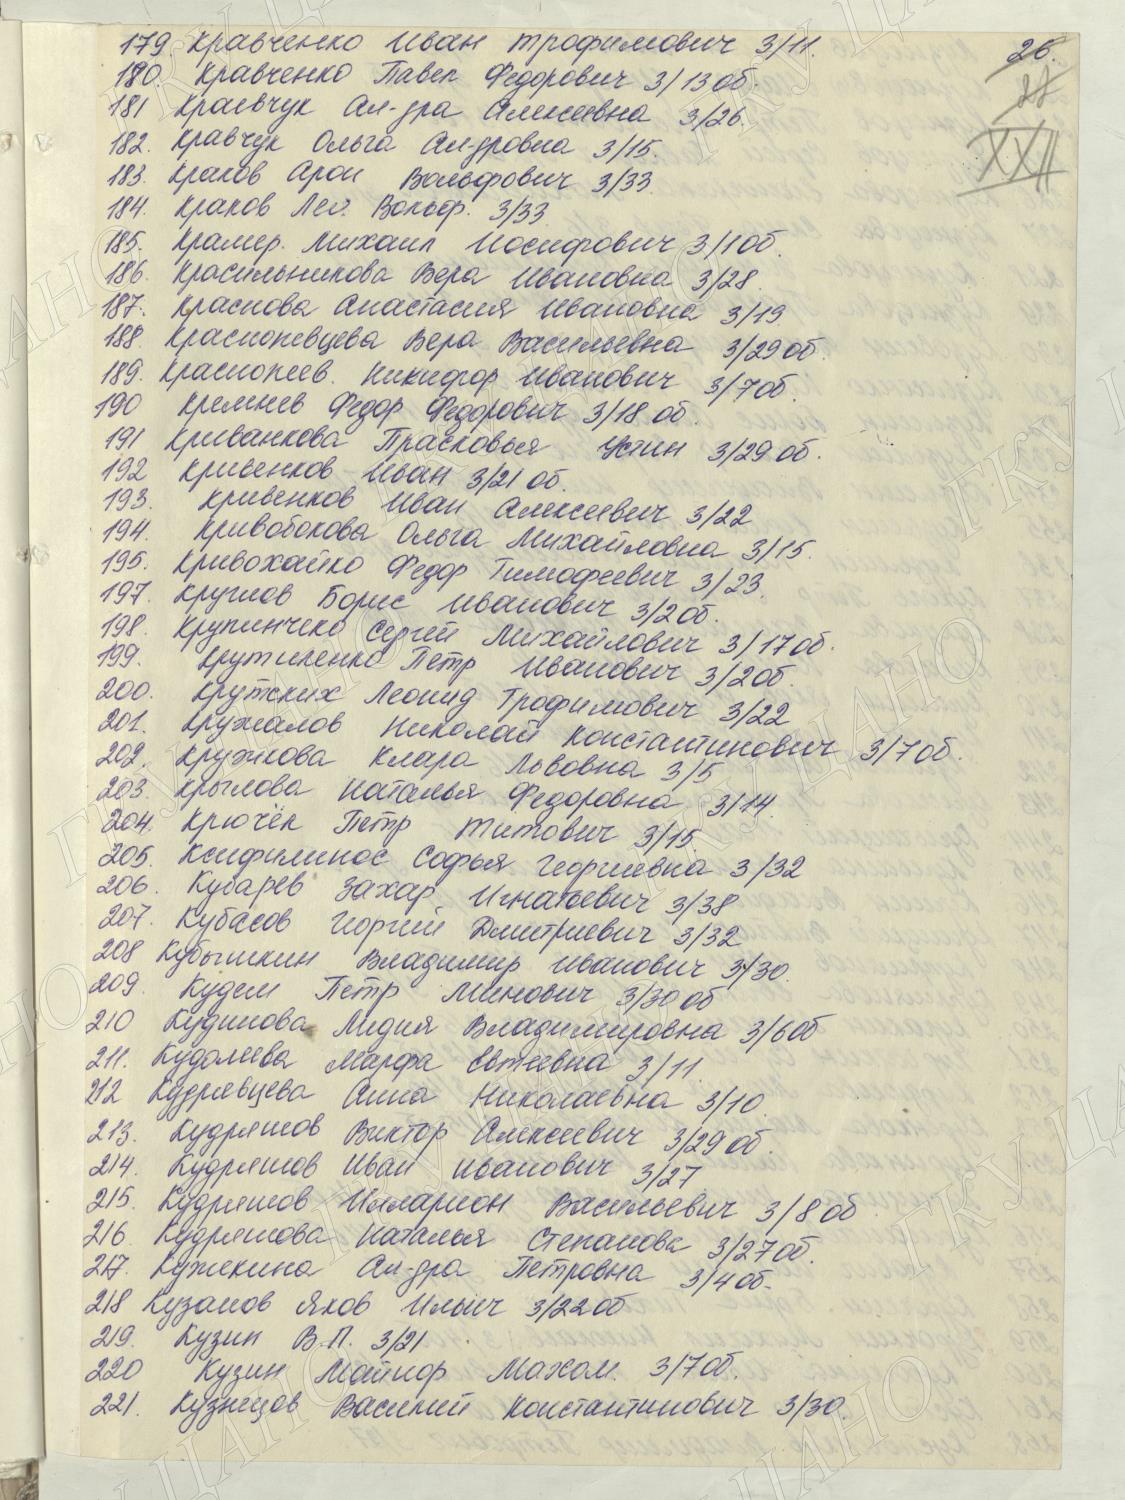 179. Кравченко Иван Трофимович 3/11.
26.
180. Кравченко Павел Федорович 3/13 об.
27
181 Краевчук Ал-дра Алексеевна 3/26.
XXII
182. Кравчук Ольга Ал-дровна 3/15.
183. Краков Арон Вольфович 3/33
184. Краков Лев. Вольф. 3/33
185. Крамер. Михаил Иосифович 3/1об.
186. Красильникова Вера Ивановна 3/28.
187. Краснова Анастасия Ивановна 3/19
188. Краснопевцева Вера Васильевна 3/29 об.
189. Краснопеев. Никифор Иванович 3/7об.
190 Кремнев Федор Федорович 3/18 об.
191 Криванкова Прасковья Устин 3/29 об.
192 Кривенков Иван 3/21 об.
193. Кривенков Иван Алексеевич 3/22
194. Кривобокова Ольга Михайловна 3/15.
195. Кривохайко Федор Тимофеевич 3/23.
197. Круглов Борис Иванович 3/2об.
198. Крупинчеко Сергей Михайлович 3/17об.
199. Крутиленко Петр Иванович 3/2об.
200. Крутских Леонид Трофимович 3/22
201. Кружалов Николай Константинович 3/7об.
202. Кружкова Клара Львовна 3/5
203. Крылова Наталья Федоровна 3/14.
204. Крючёк Петр Титович 3/15
205. Ксифилинос Софья Георгиевна 3/32
206. Кубарев Захар Игнатьевич 3/38
207. Кубасов Георгий Дмитриевич 3/32
208 Кубышкин Владимир Иванович 3/30.
209. Кудем Петр Минович 3/30 об
210 Кудинова Лидия Владимировна 3/6об
211. Кудолеева Марфа Евтеевна 3/11.
212 Кудрявцева Анна Николаевна 3/10.
213. Кудряшов Виктор Алексеевич 3/29 об.
214. Кудряшов Иван Иванович 3/27
215. Кудряшов Илларион Васильевич 3/8об
216. Кудряшова Наталья Степанова 3/27об.
217. Кужекина Ал-дра Петровна 3/4об.
218 Кузанов Яков Ильич 3/22об
219. Кузин В.П. 3/21
220 Кузин Майнор Махом. 3/7об.
221. Кузнецов Василий Константинович 3/30.